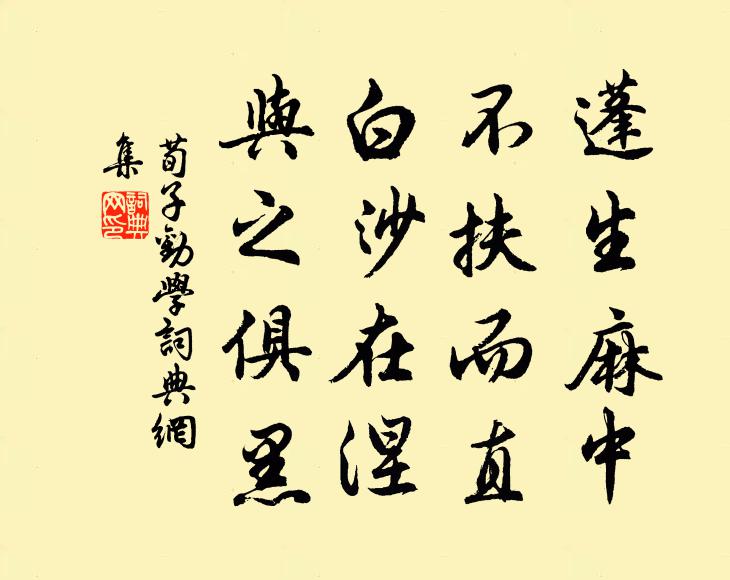 蓬生麻中
不扶而直
白沙在涅
與之俱黑
荀子勸學詞典網
集
詞典網印